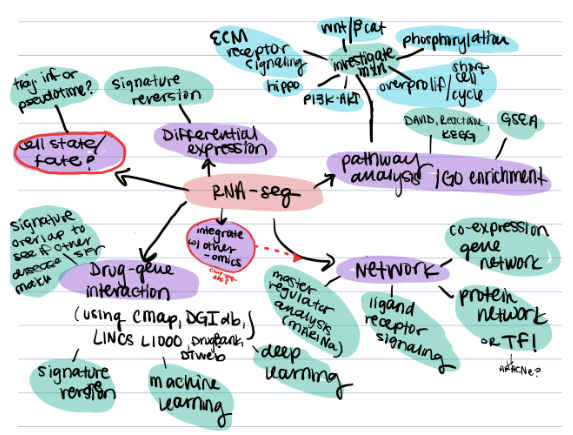 wnt/βcat
ECM
receptor
signaling
investigate
mxn
phosphorylation
hippo
PI3K-AKT
overprolif/short
cell
cycle
traj inf or
pseudotime?
signature
reversion
cell state/
fate?
Differential
expression
DAVID, Reactome,
KEGG
GSEA
pathway
analysis /GO enrichment
RNA-seq
integrate
w/ other
-omics
signature
overlap to
see if other
disease/
match
Drug-gene
interaction
(using CMap, DGIdb,
LINCS L1000, Drugbank,
DTweb
signature
reversion
machine
learning
deep
learning
Network
master
regulator
analysis
(MARINa)
ligand
receptor
signaling
co-expression
gene
network
protein
network
or TF!
ARACNe?